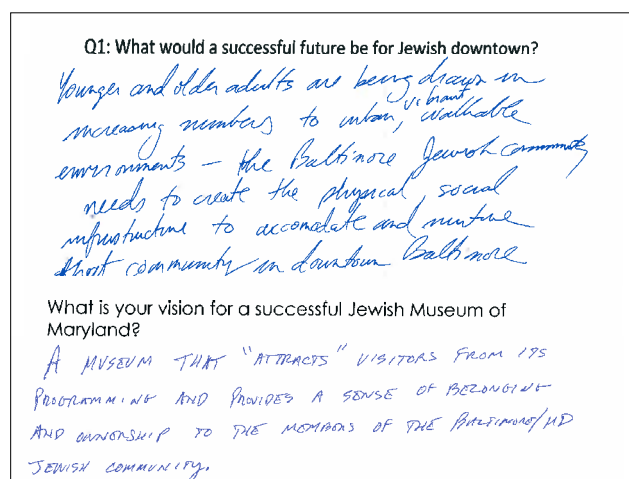 Q1: What would a successful future be for Jewish downtown?
Younger and older adults are being drawn in
increasing numbers to urban, vibrant walkable
environments – the Baltimore Jewish community
needs to create the physical, social
infrastructure to accomodate and nurture
that community in downtown Baltimore
What is your vision for a successful Jewish Museum of
Maryland?
A MUSEUM THAT "ATTRACTS" VISITORS FROM ITS
PROGRAMMING AND PROVIDES A SENSE OF BELONGING
AND OWNERSHIP TO THE MEMBERS OF THE BALTIMORE/MD
JEWISH COMMUNITY.